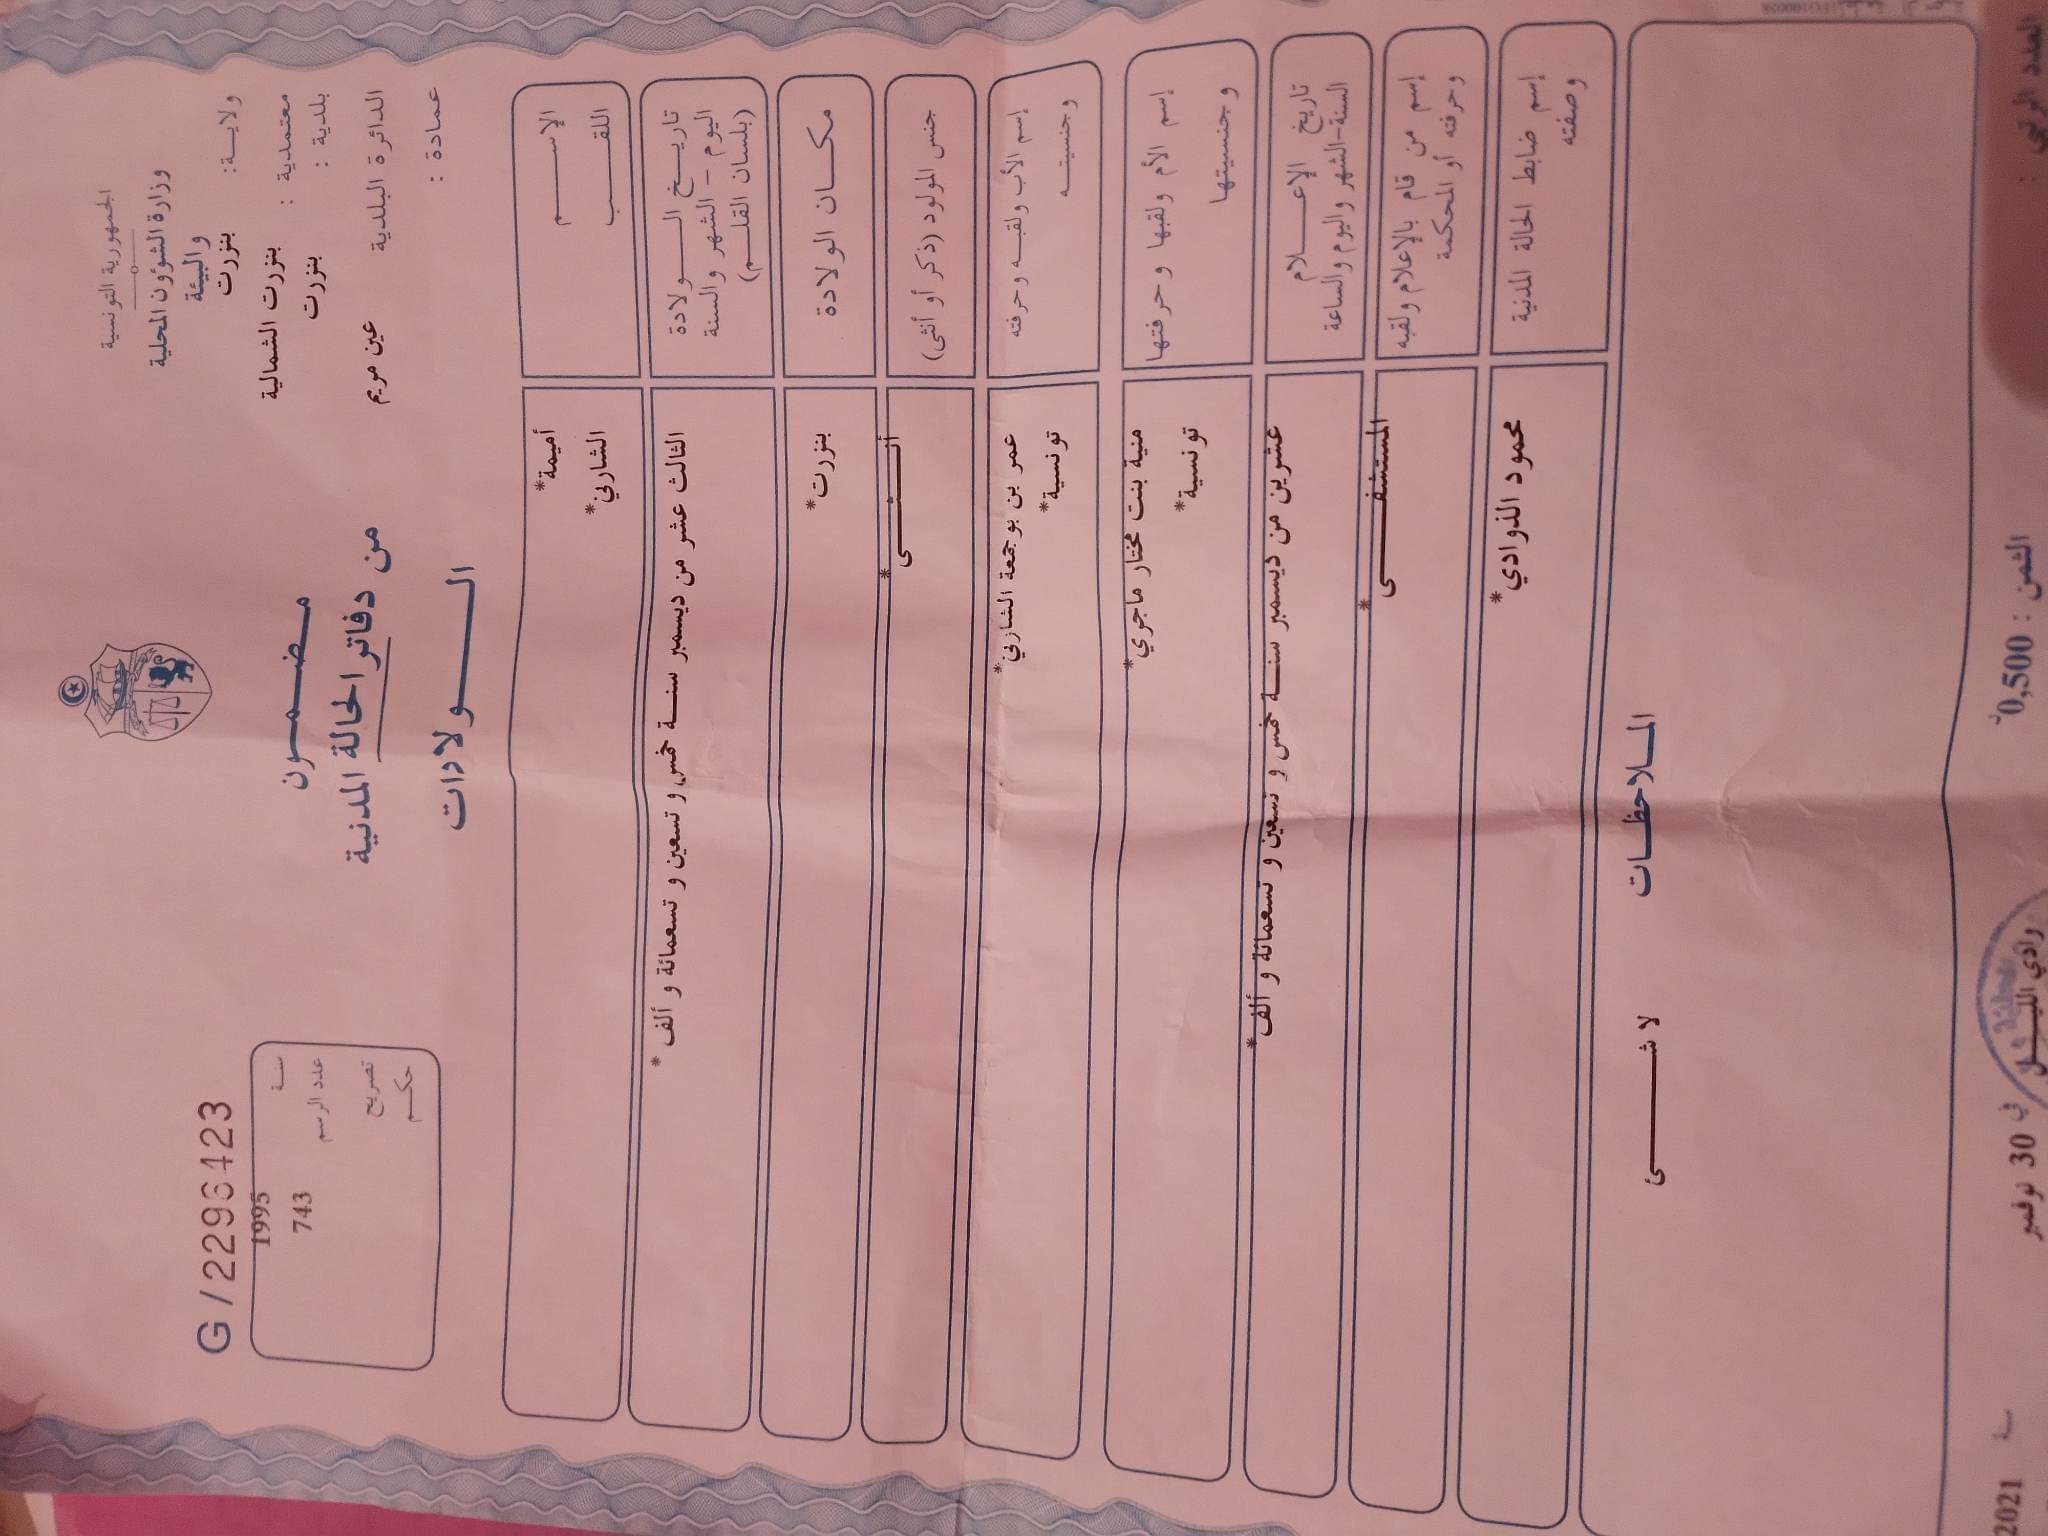 الجمهورية التونسية
وزارة الشؤون المحلية
والبيئة
ولاية : بنزرت
معتمدية : بنزرت الشمالية
بلدية : بنزرت
الدائرة البلدية عين مريم
عمادة :
مضمون
من دفاتر الحالة المدنية
الولادات
G / 2296423
سنة 1995
عدد الرسم 743
تصريح
حكم
الإسم أميمة*
اللقب الشارني*
تاريخ الولادة الثالث عشر من ديسمبر سنة خمس و تسعين و تسعمائة و ألف *
اليوم - الشهر والسنة
(بلسان القلم)
مكان الولادة بنزرت*
جنس المولود (ذكر أو أنثى) أنثى*
إسم الأب ولقبه وحرفته عمر بن بوجمعة الشارني*
وجنسيته تونسية*
إسم الأم ولقبها وحرفتها منية بنت مختار ماجري*
وجنسيتها تونسية*
تاريخ الإعلام عشرين من ديسمبر سنة خمس و تسعين و تسعمائة و ألف*
السنة-الشهر واليوم والساعة
إسم من قام بالإعلام ولقبه المستشفى*
وحرفته أو المحكمة
إسم ضابط الحالة المدنية محمود الذوادي*
وصفته
الملاحظات
لا شئ
العدد الرتبي :
الثمن : 0,500د
وادي الليل في 30 نوفمبر سنة 2021